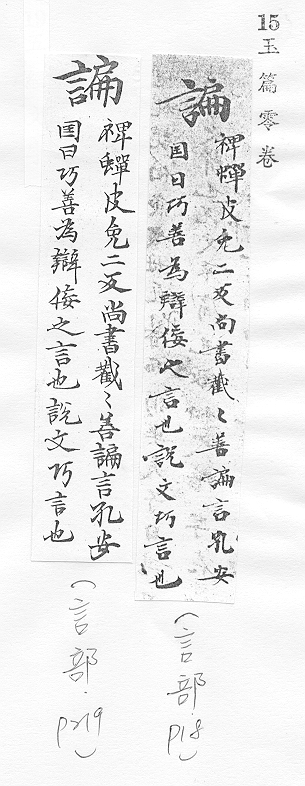 15玉篇零卷
諞
裨蟬皮免二反尚書截〻善諞言孔安
囯曰巧善為辯佞之言也說文巧言也
(言部.P18)
諞
裨蟬皮免二反尚書截〻善諞言孔安
囯曰巧善為辯佞之言也說文巧言也
(言部.P219)